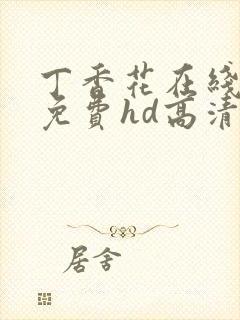 丁香花在綫
免費hd高清
居舍